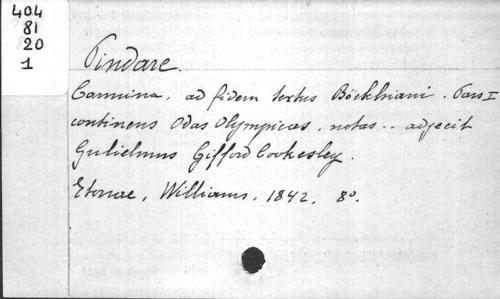 404
81
20
1
Pindare.
Carmina, ad fidem textus Böckhiani. Pars I
continens Odas Olympicas, notas .. adjecit
Gulielmus Gifford Cookesley.
Etonae, Williams, 1842. 8o.